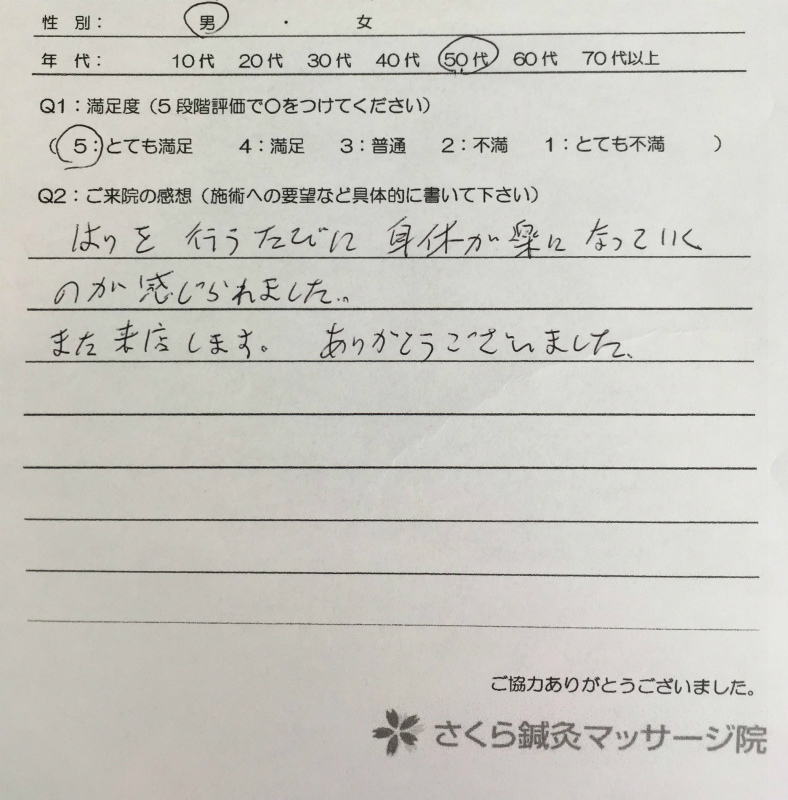 性 別： 男 ・ 女
年 代： 10代 20代 30代 40代 50代 60代 70代以上
Q1：満足度（5段階評価で〇をつけてください）
（ 5：とても満足 4：満足 3：普通 2：不満 1：とても不満 ）
Q2：ご来院の感想（施術への要望など具体的に書いて下さい）
はりを 行うたびに 身体が楽に なっていく
のが感じられました。
また来店します。 ありがとうございました。
ご協力ありがとうございました。
さくら鍼灸マッサージ院